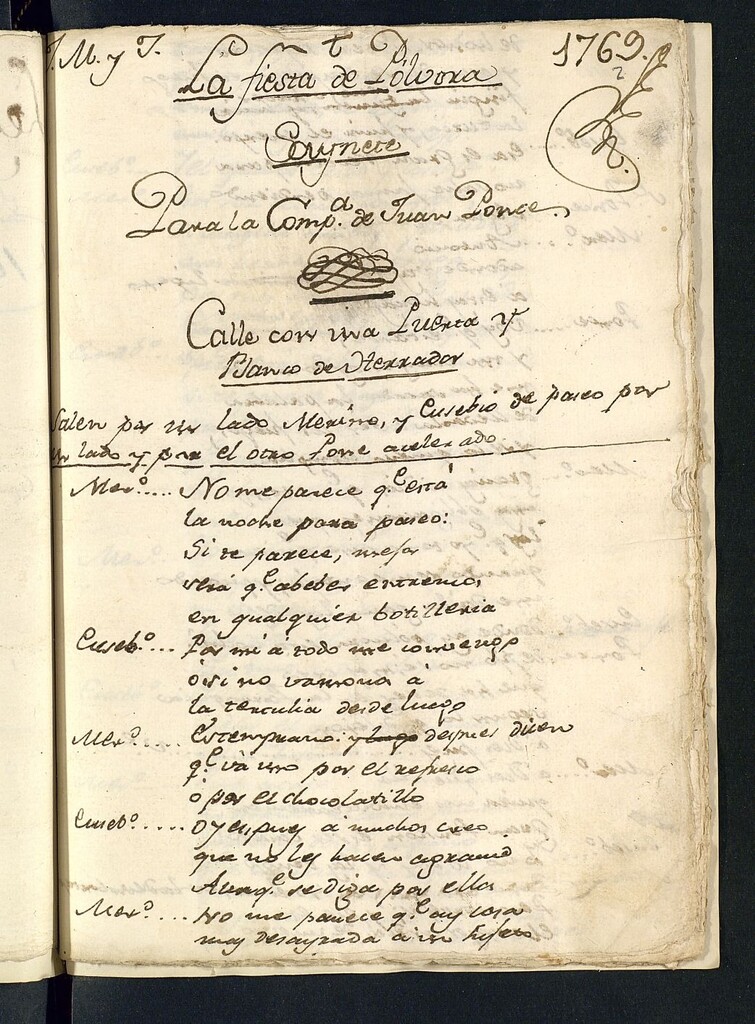 J. M. y J. 1769.
La fiesta de Pólvora
Saynete
Para la Comp.a de Juan Ponce.
Calle con una Puerta y
Banco de Herrador
Salen por un lado Merino, y Eusebio de paseo por
un lado y por el otro Ponce acelerado
Mer.o.... No me parece q.e está
la noche para paseo:
Si te parece, mejor
será q.e a beber entremos
en qualquier botilleria
Euseb.o... Por mi á todo me convengo
ó si no vamonos á
la tertulia desde luego
Mer.o.... Es temprano: y luego despues dicen
q.e vá uno por el refresco
ó por el chocolatillo
Euseb.o.... Oyes, pues á muchos creo
que no les hacen agravio
Aunq.e se diga por ellos
Mer.o.... No me parece q.e ay cosa
mas desayrada á un